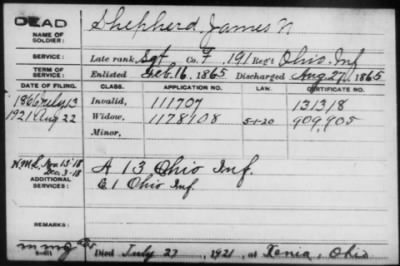 DEAD
NAME OF SOLDIER: Shepherd, James N
SERVICE: Late rank, Sgt Co. F, 191 Reg't Ohio Inf
TERM OF SERVICE: Enlisted Feb. 16, 1865 Discharged Aug 27, 1865
DATE OF FILING. CLASS. APPLICATION NO. LAW. CERTIFICATE NO.
1866 July 13 Invalid, 111707 131318
1921 Aug 22 Widow, 1178908 5-1-20 909,905
Minor,
Nov. 13-18
Dec. 3-18
ADDITIONAL SERVICES: A 13 Ohio Inf.
E 1 Ohio Inf
REMARKS:
Died July 27, 1921, at Xenia, Ohio